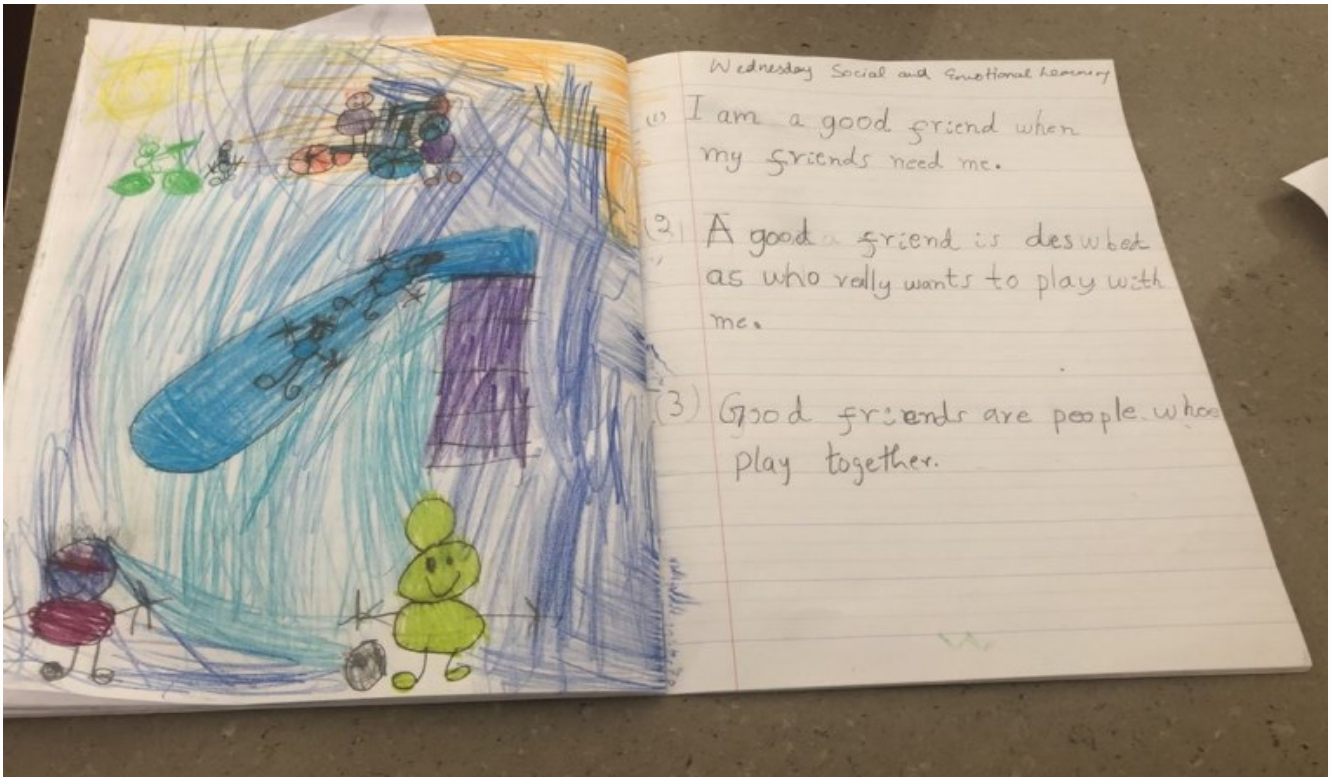 Wednesday Social and Emotional Learning
(1) I am a good friend when
my friends need me.
(2) A good friend is deswbed
as who really wants to play with
me.
(3) Good friends are people whoe
play together.